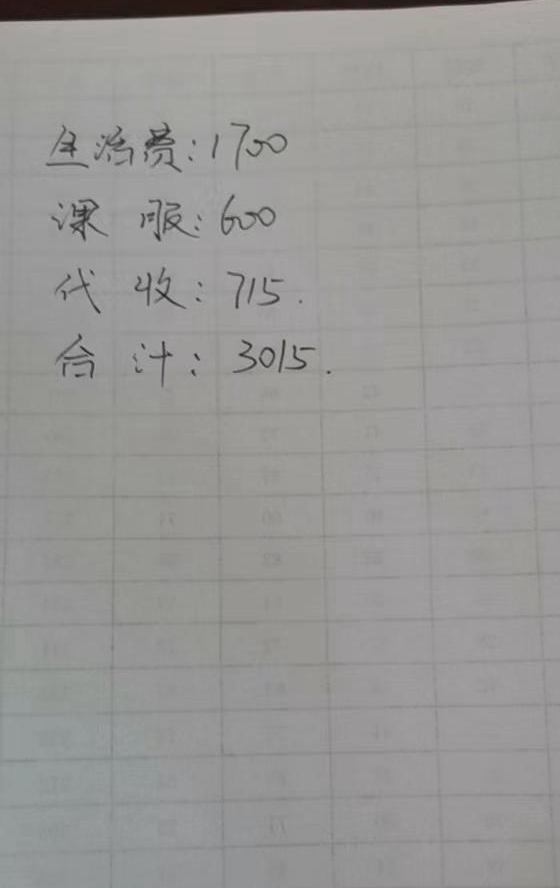 生活费:1700
课 服:600
代 收:715.
合 计:3015.